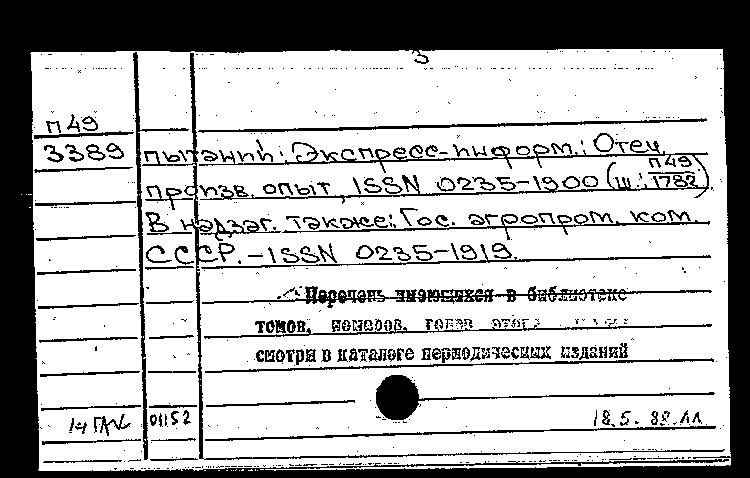 3
П49
3389 пытаний: Экспресс-информ.: Отеч.
произв. опыт, ISSN 0235-1900 (Ш: П49/1782).
В надзаг. также: Гос. агропром. ком.
СССР. – ISSN 0235-1919.
Перечень имеющихся в библиотеке
томов, номеров, годов этого
смотри в каталоге периодических изданий
01152 18.5.88.